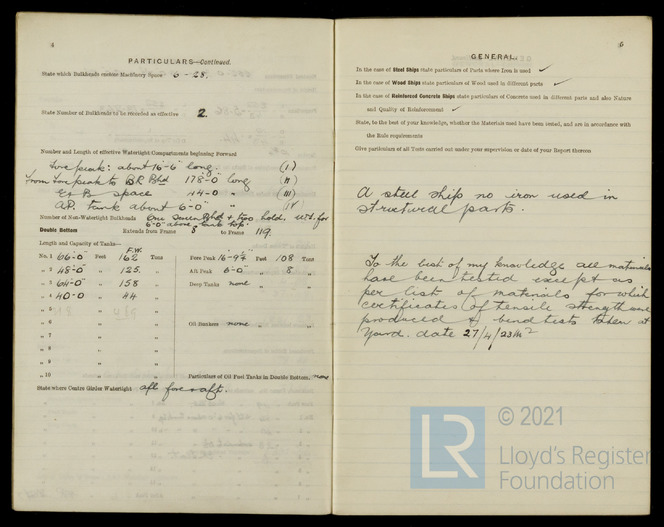 4
PARTICULARS—Continued.
State which Bulkheads enclose Machinery Space 6-28.
State Number of Bulkheads to be recorded as effective 2.
Number and Length of effective Watertight Compartments beginning Forward
Fore peak: about 16'-6" long. (I)
From Forepeak to BR Bhd 178'-0" long (II)
E & B space 44-0 " (III)
A.P. tank about 6'-0" " (IV)
Number of Non-Watertight Bulkheads One Screen Bhd & two hold. W.T. for
6'-0" above tank top.
Double Bottom Extends from Frame 8 to Frame 119.
Length and Capacity of Tanks—
F.W.
No. 1 66-0" Feet 162 Tons Fore Peak 16-9½" Feet 108 Tons
„ 2 48-0" „ 125. „ Aft Peak 6-0" „ 8 „
„ 3 64-0" „ 158 „ Deep Tanks none „ „
„ 4 40-0 „ 44 „
„ 5 „ „
„ 6 „ „ Oil Bunkers none „ „
„ 7 „ „
„ 8 „ „
„ 9 „ „
„ 10 „ „ Particulars of Oil Fuel Tanks in Double Bottom. none
State where Centre Girder Watertight all fore & aft.
5
GENERAL.
In the case of Steel Ships state particulars of Parts where Iron is used ✓
In the case of Wood Ships state particulars of Wood used in different parts ✓
In the case of Reinforced Concrete Ships state particulars of Concrete used in different parts and also Nature
and Quality of Reinforcement ✓
State, to the best of your knowledge, whether the Materials used have been tested, and are in accordance with
the Rule requirements
Give particulars of all Tests carried out under your supervision or date of your Report thereon
A steel ship no iron used in
structural parts.
To the best of my knowledge all materials
have been tested except as
per list of materials for which
certificates of tensile strength are
produced & bend tests taken at
Yard. date 27/4/23
© 2021
LR
Lloyd's Register
Foundation